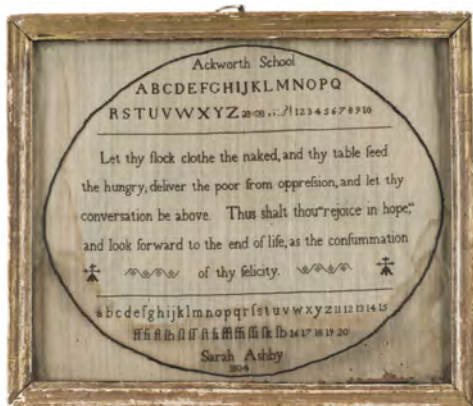 Ackworth School
ABCDEFGHIJKLMNOPQ
RSTUVWXYZ æ œ .,:;?! 1 2 3 4 5 6 7 8 9 10
Let thy flock clothe the naked, and thy table feed
the hungry, deliver the poor from oppreſsion, and let thy
conversation be above. Thus shalt thou “rejoice in hope,”
and look forward to the end of life, as the conſummation
of thy felicity.
a b c d e f g h i j k l m n o p q r ſ s t u v w x y z 11 12 13 14 15
16 17 18 19 20
Sarah Ashby
1804